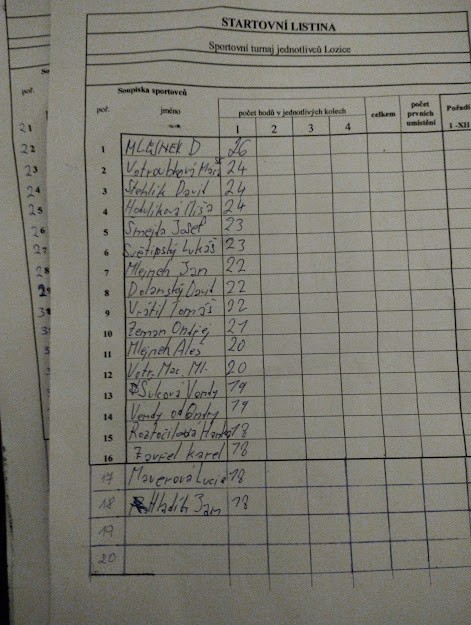 STARTOVNÍ LISTINA
Sportovní turnaj jednotlivců Lozice
Soupiska sportovců
poř. jméno počet hodů v jednotlivých kolech celkem počet prvních umístění Pořadí
1 2 3 4 I -XII
1 MLEJNEK D 26
2 24
3 Stehlík David 24
4 24
5 Smejda Josef 23
6 Světipský Lukáš 23
7 Mlejnek Jan 22
8 Dolanský David 22
9 Vrátil Tomáš 22
10 Zeman Ondřej 21
11 Mlejnek Aleš 20
12 Votr. Mac. Ml. 20
13 Sukova Vendy 19
14 Vendy od Ondry 19
15 18
16 Karel 18
17 Maverová Lucie 18
18 Hladík Jan 18
19
20
poř.
21
22
23
24
25
26
27
28
29